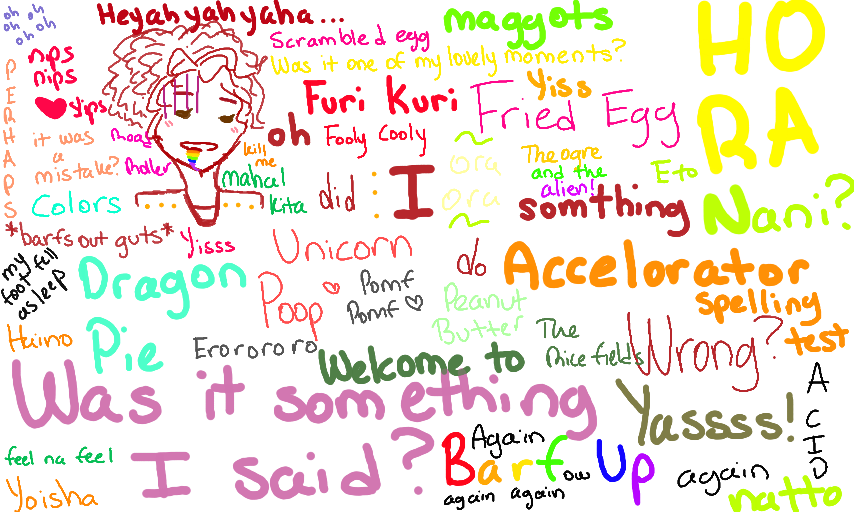 oh oh
oh oh
oh oh
Heyahyahyaha...
Scrambled egg
maggots
HO
RA
Was it one of my lovely moments?
nps
nips
yips
PERHAPS
HA
Furi Kuri
Yiss
Fried Egg
oh
Fooly Cooly
it was
a
mistake?
kill
me
mahal
kita
did
:
I
ora
ora
The ogre
and the
alien!
Eto
Colors
somthing
Nani?
*barfs out guts*
Yisss
Unicorn
Poop
do
Accelorator
my
foot fell
asleep
Dragon
Pie
Pomf
Pomf
Peanut
Butter
spelling
test
Haino
Erorororo
Welcome to
The
rice fields
Wrong?
ACID
Was it something
I said?
Yassss!
feel na feel
Yoisha
Again
Barf
ow
Up
again
again again
natto